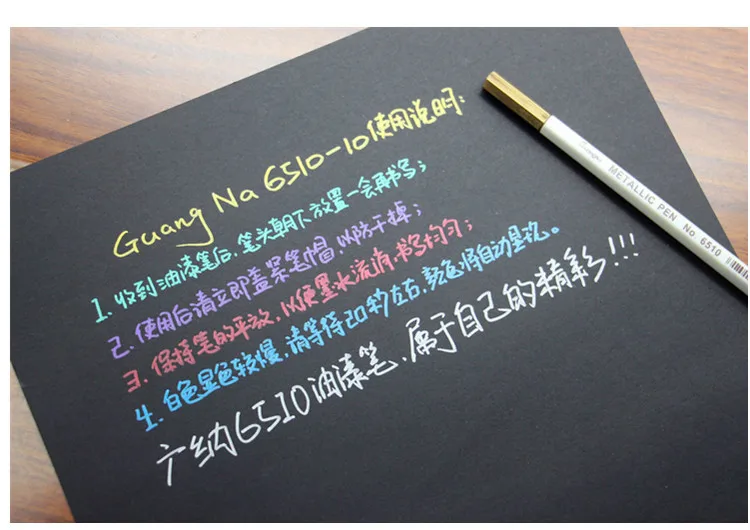 Guang Na 6510-10使用说明:
1. 收到油漆笔后, 笔头朝下放置一会再书写;
2. 使用后请立即盖紧笔帽, 以防干掉;
3. 保持笔的平放, 以便墨水流有书写均匀;
4. 白色显色较慢, 请等待20秒左右, 颜色将自动显现。
广纳6510油漆笔, 属于自己的精彩!!!
METALLIC PEN No 6510